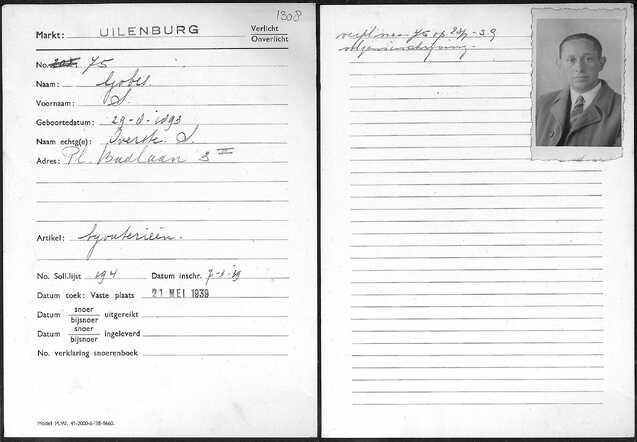 1308
Markt: UILENBURG Verlicht
Onverlicht
No. 75
Naam: Gobes
Voornaam: S.
Geboortedatum: 29-8-1893
Naam echtg(e): S.
Adres: Pl. Badlaan 3 III
Artikel: byouterieën.
No. Soll.lijst 194 Datum inschr. 7-8-19
Datum toek: Vaste plaats 21 MEI 1939
Datum snoer
bijsnoer uitgereikt
Datum snoer
bijsnoer ingeleverd
No. verklaring snoerenboek
Model M.W. 41-2000-6-'38-8660.
naar 75 op -39